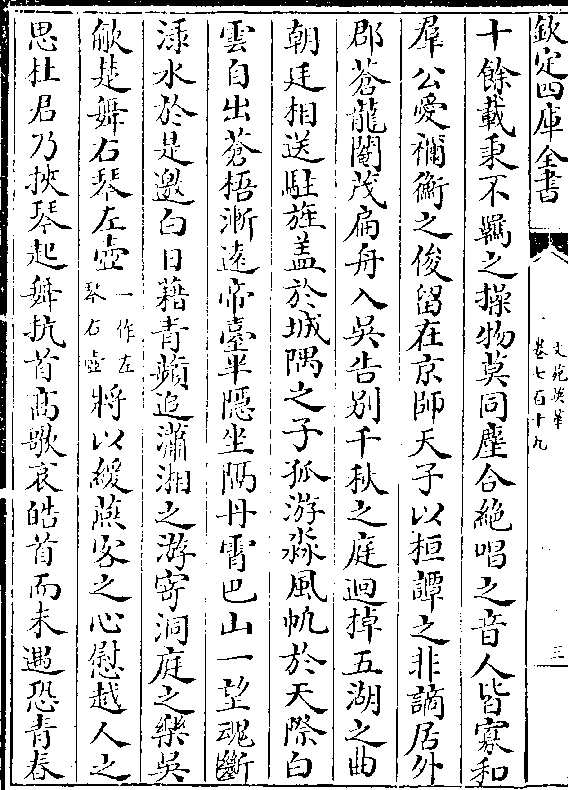 欽定四庫全書
文苑英華
卷七百十九
三
十餘載秉不羈之操物莫同塵合絶唱之音人皆寡和
羣公愛禰衡之俊留在京師天子以桓譚之非謫居外
郡蒼龍閹茂扁舟入吳告别千秋之庭迴掉五湖之曲
朝廷相送駐旌盖於城隅之子孤游淼風帆於天際白
雲自出蒼梧漸遠帝臺半隠坐隔丹霄巴山一望魂斷
渌水於是邀白日藉青蘋追瀟湘之游寄洞庭之樂吳
歈楚舞右琴左壺一作左琴右壺將以緩燕客之心慰越人之
思杜君乃挾琴起舞抗首髙歌哀皓首而未遇恐青春